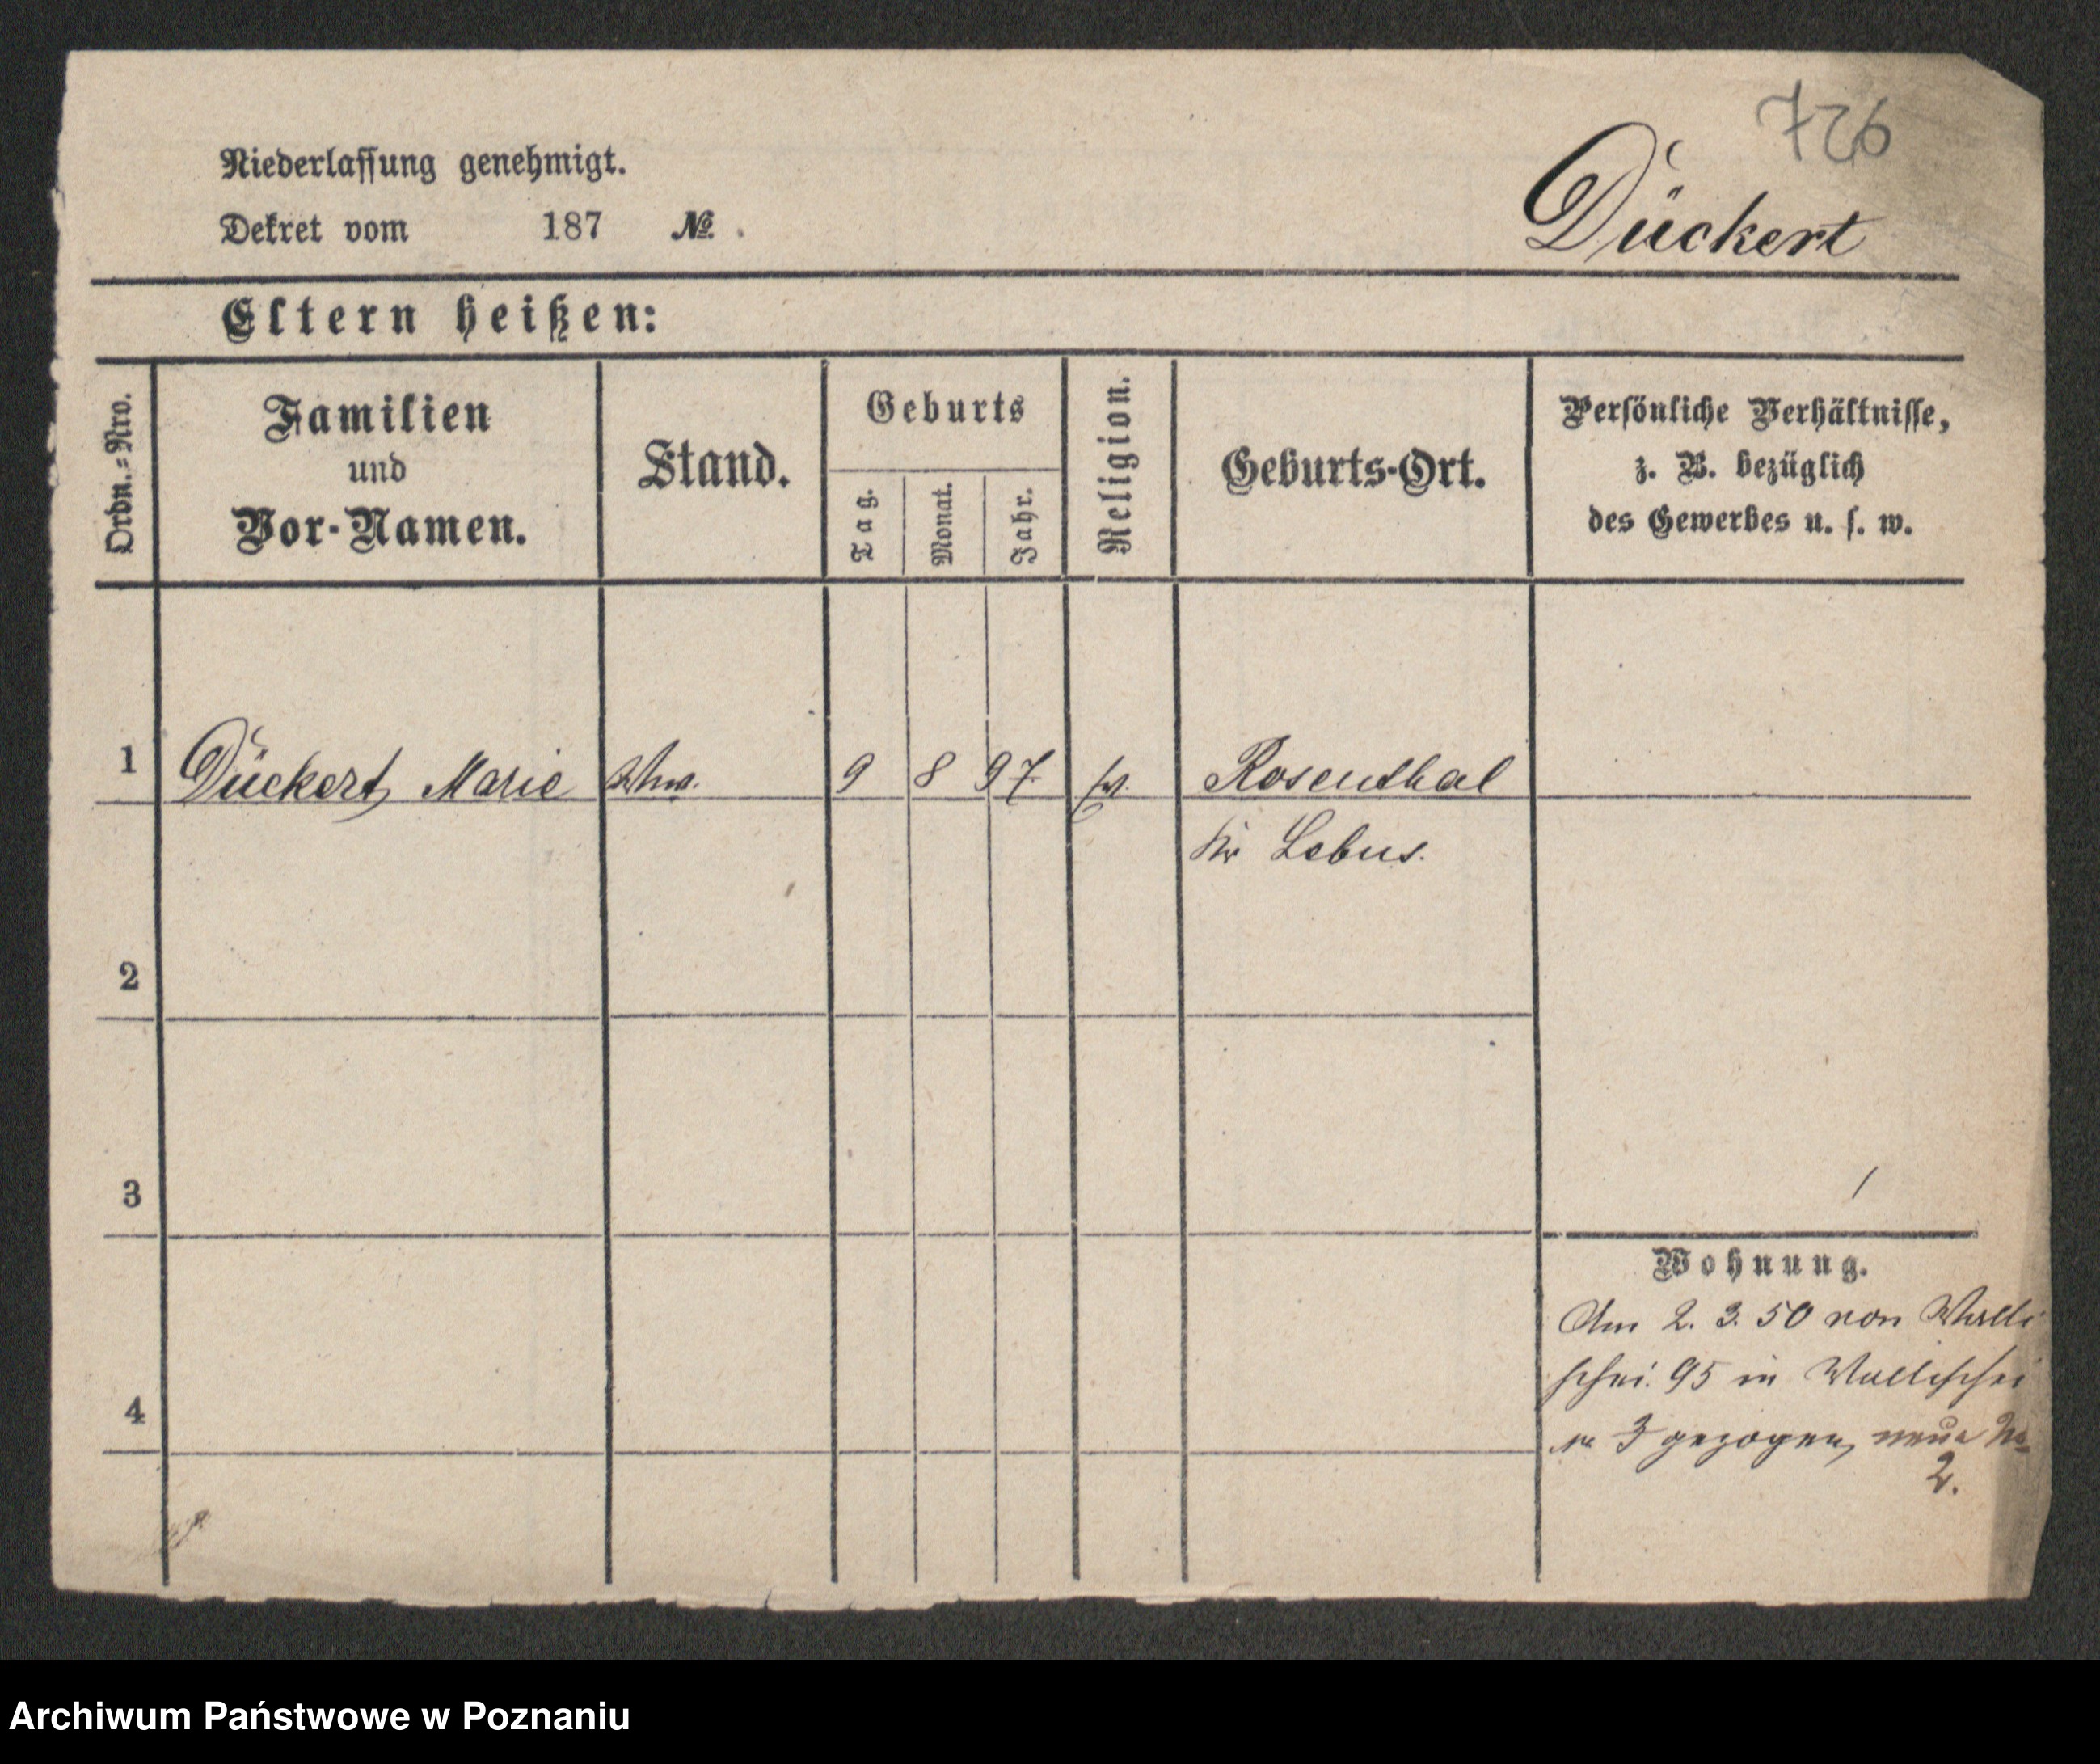 726
Niederlassung genehmigt.
Dekret vom 187 № .
Dückert
Eltern heißen:
Ordn.=Nro.
Familien
und
Vor-Namen.
Stand.
Geburts
Tag.
Monat.
Jahr.
Religion.
Geburts-Ort.
Persönliche Verhältnisse,
z. B. bezüglich
des Gewerbes u. s. w.
1 Dückert, Marie Wwe. 9 8 97 ev. Rosenthal
Kr Lebus.
2
3
4
Wohnung.
Am 2. 3. 50 von Walli
schei. 95 in Wallischei
No 3 gezogen, neue No
2.
Archiwum Państwowe w Poznaniu